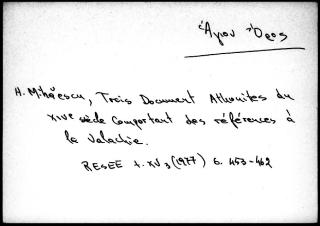 Ἅγιον Ὄρος
H. Mihăescu, Trois Document Athonites du
XIVe siècle comportant des références à
la Valachie.
RESEE t. XV, 3 (1977) σ. 453-462